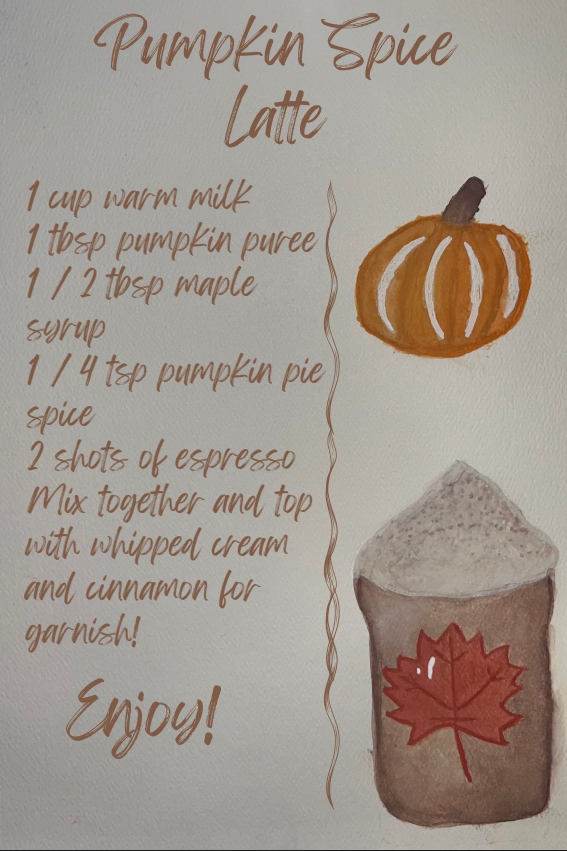 Pumpkin Spice
Latte
1 cup warm milk
1 tbsp pumpkin puree
1 / 2 tbsp maple
syrup
1 / 4 tsp pumpkin pie
spice
2 shots of espresso
Mix together and top
with whipped cream
and cinnamon for
garnish!
Enjoy!